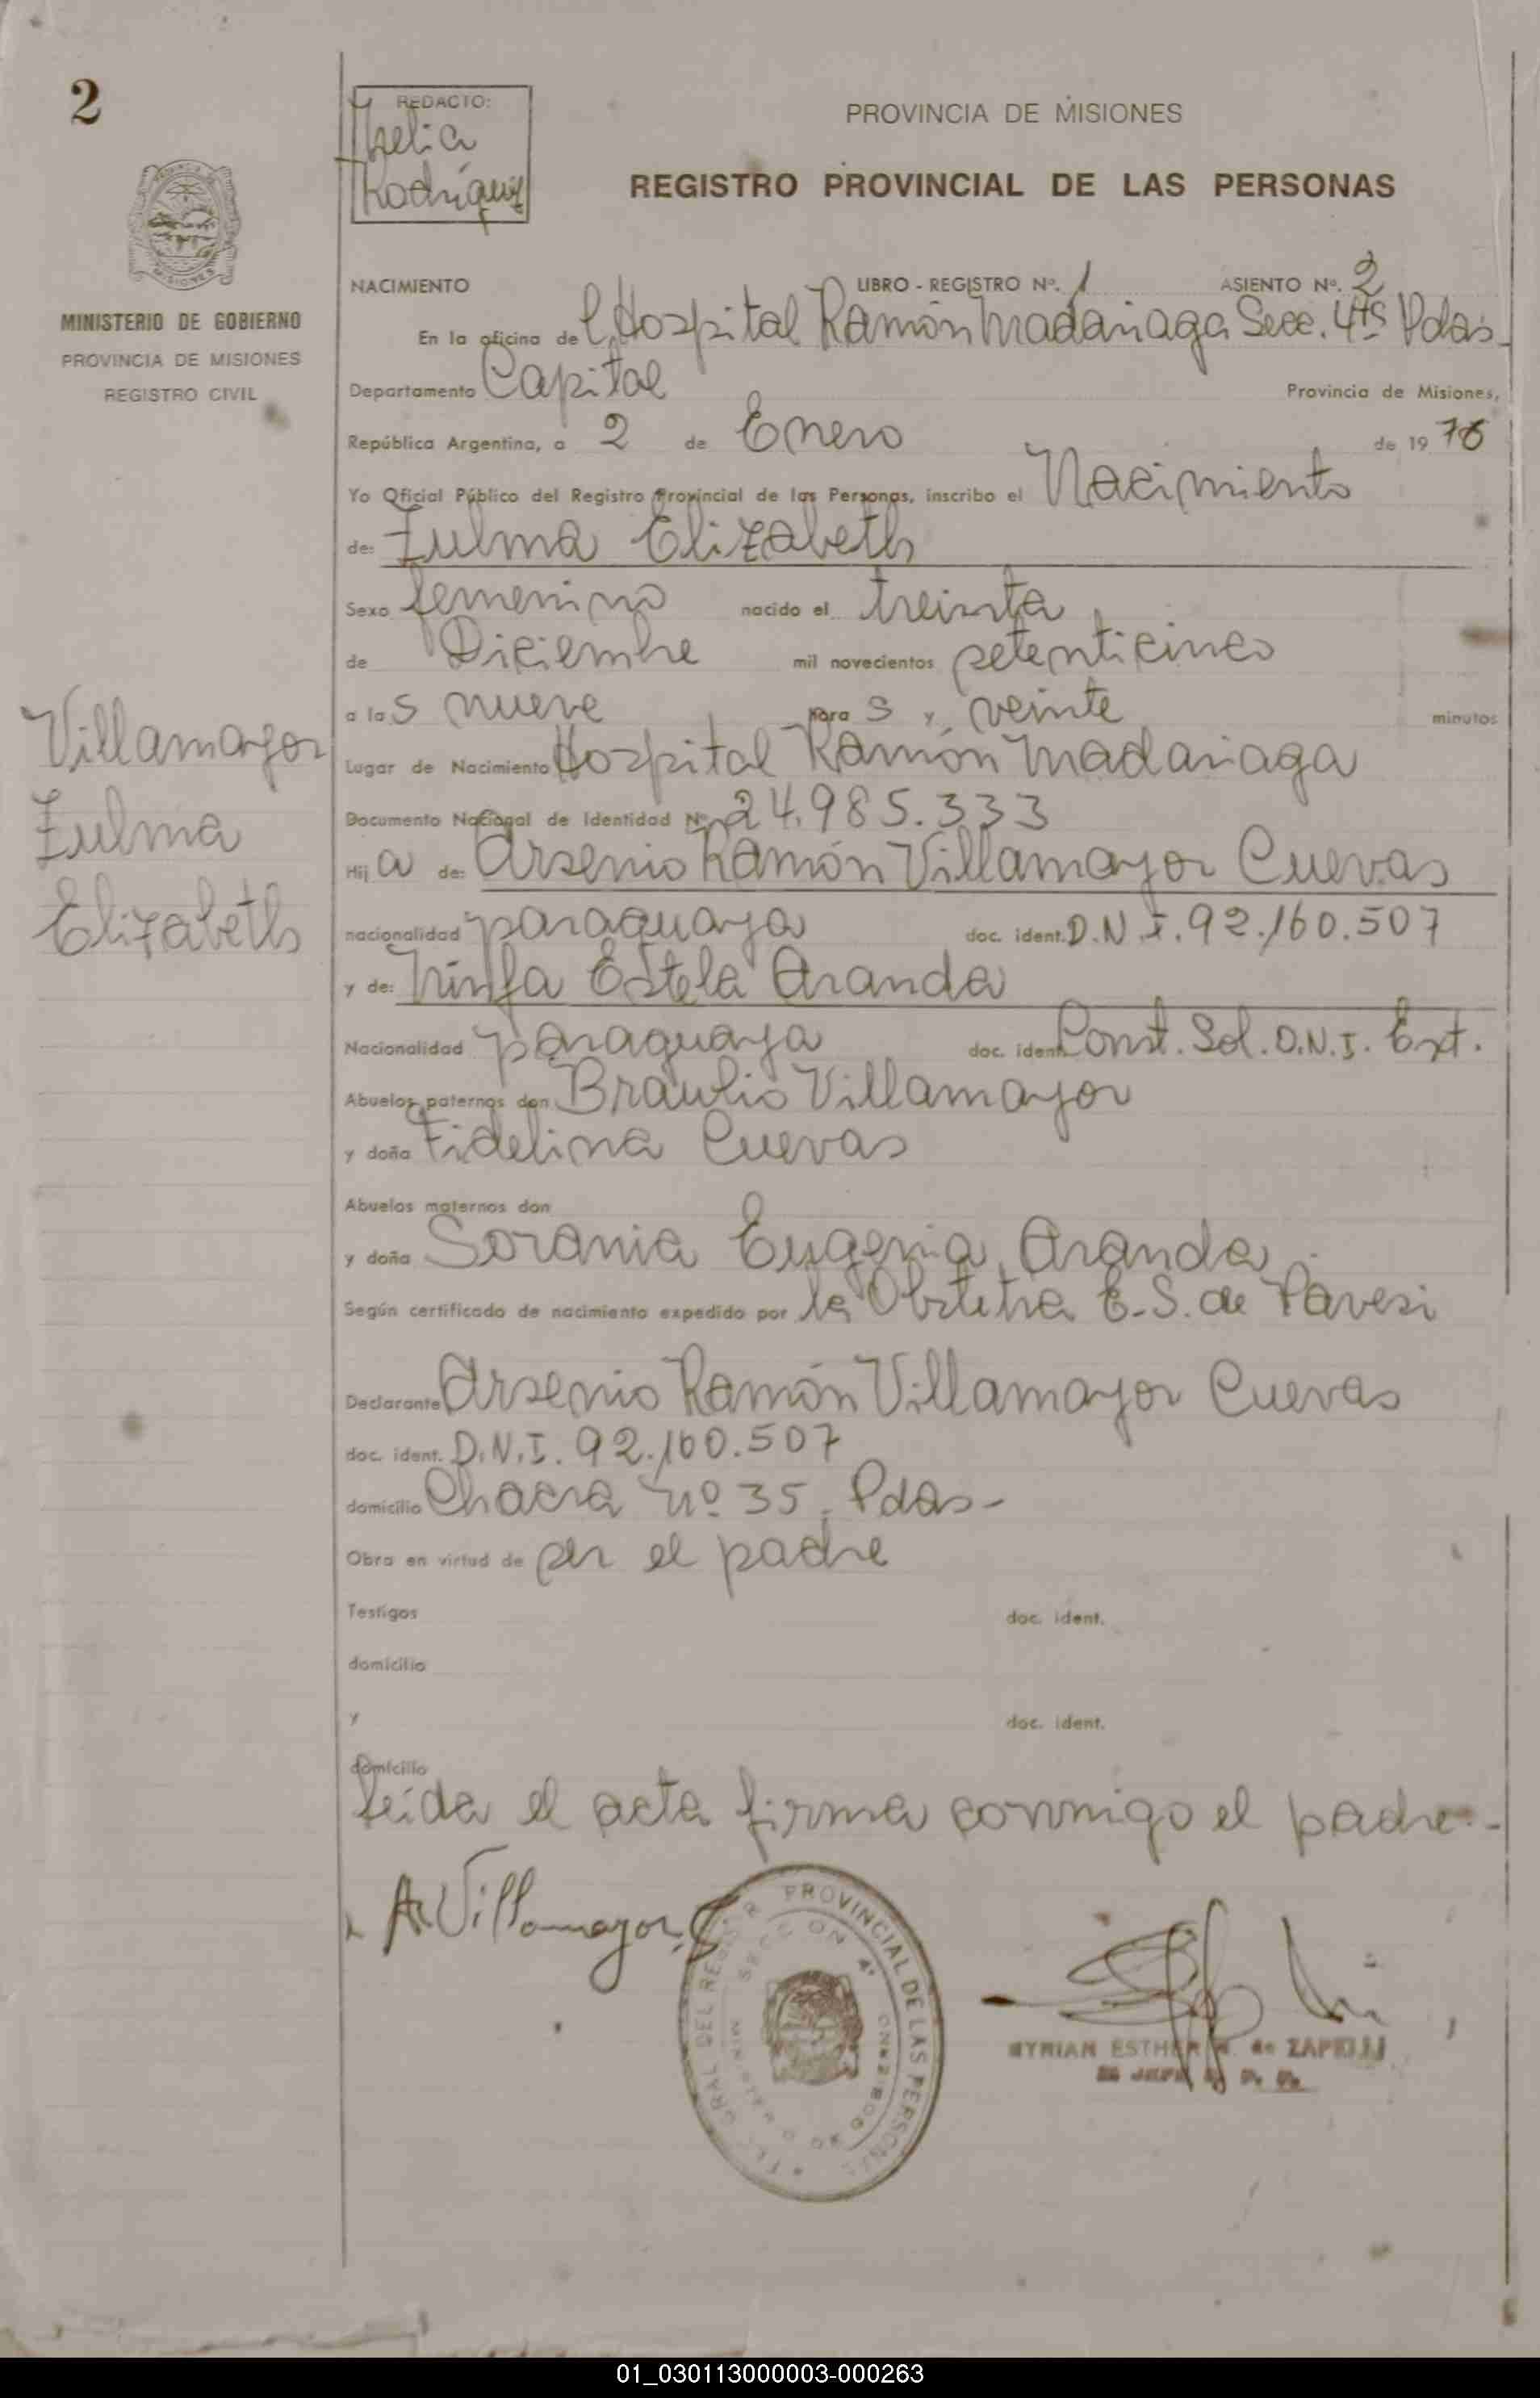 2
REDACTO:
Thelia
Rodríguez
PROVINCIA DE MISIONES
REGISTRO PROVINCIAL DE LAS PERSONAS
MINISTERIO DE GOBIERNO
PROVINCIA DE MISIONES
REGISTRO CIVIL
NACIMIENTO LIBRO - REGISTRO Nº. 1 ASIENTO Nº. 2
En la oficina del Hospital Ramón Madariaga Secc. 4ta Pdas.
Departamento Capital Provincia de Misiones,
República Argentina, a 2 de Enero de 1976
Yo Oficial Público del Registro Provincial de las Personas, inscribo el Nacimiento
de: Zulma Elizabeth
Sexo femenino nacido el treinta
de Diciembre mil novecientos setenticinco
a las nueve horas y veinte minutos
Lugar de Nacimiento Hospital Ramón Madariaga
Documento Nacional de Identidad Nº 24.985.333
Hija de: Arsenio Ramón Villamayor Cuevas
nacionalidad paraguaya doc. ident. D.N.I. 92.160.507
y de: Ninfa Estela Aranda
Nacionalidad paraguaya doc. ident. Const. Sol. D.N.I. Ext.
Abuelos paternos don Braulio Villamayor
y doña Fidelina Cuevas
Abuelos maternos don
y doña Sorania Eugenia Aranda
Según certificado de nacimiento expedido por la Obstetra E.S. de Pavesi
Declarante Arsenio Ramón Villamayor Cuevas
doc. ident. D.N.I. 92.160.507
domicilio Chacra nº 35, Pdas-
Obra en virtud de ser el padre
Testigos doc. ident.
domicilio
y doc. ident.
domicilio
leída el acta firma conmigo el padre.-
Villamayor
Zulma
Elizabeth
A. Villamayor C
PROVINCIAL DE LAS PERSONAS
SECCION 4ª
MYRIAN ESTHER de ZAPELLI
01_030113000003-000263